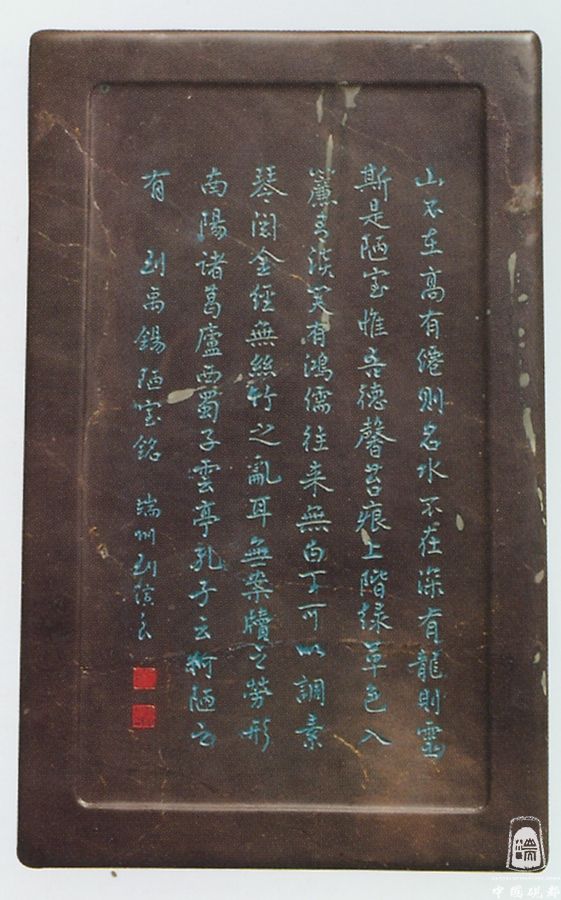 山不在高有僊则名水不在深有龍則靈
斯是陋室惟吾德馨苔痕上階緑草色入
簾青談笑有鴻儒往来無白丁可以調素
琴閲金經無絲竹之亂耳無案牘之勞形
南陽諸葛廬西蜀子雲亭孔子云何陋之
有 刘禹錫陋室銘 端州刘演良
端
中國硯都